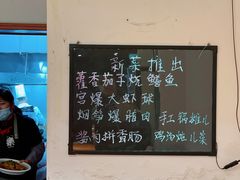 新菜推出
藿香茄子烧鳝鱼
宫爆大虾球
烟笋爆腊肉 手工锅摊儿
酱肉拼香肠 鸡汤炖儿菜